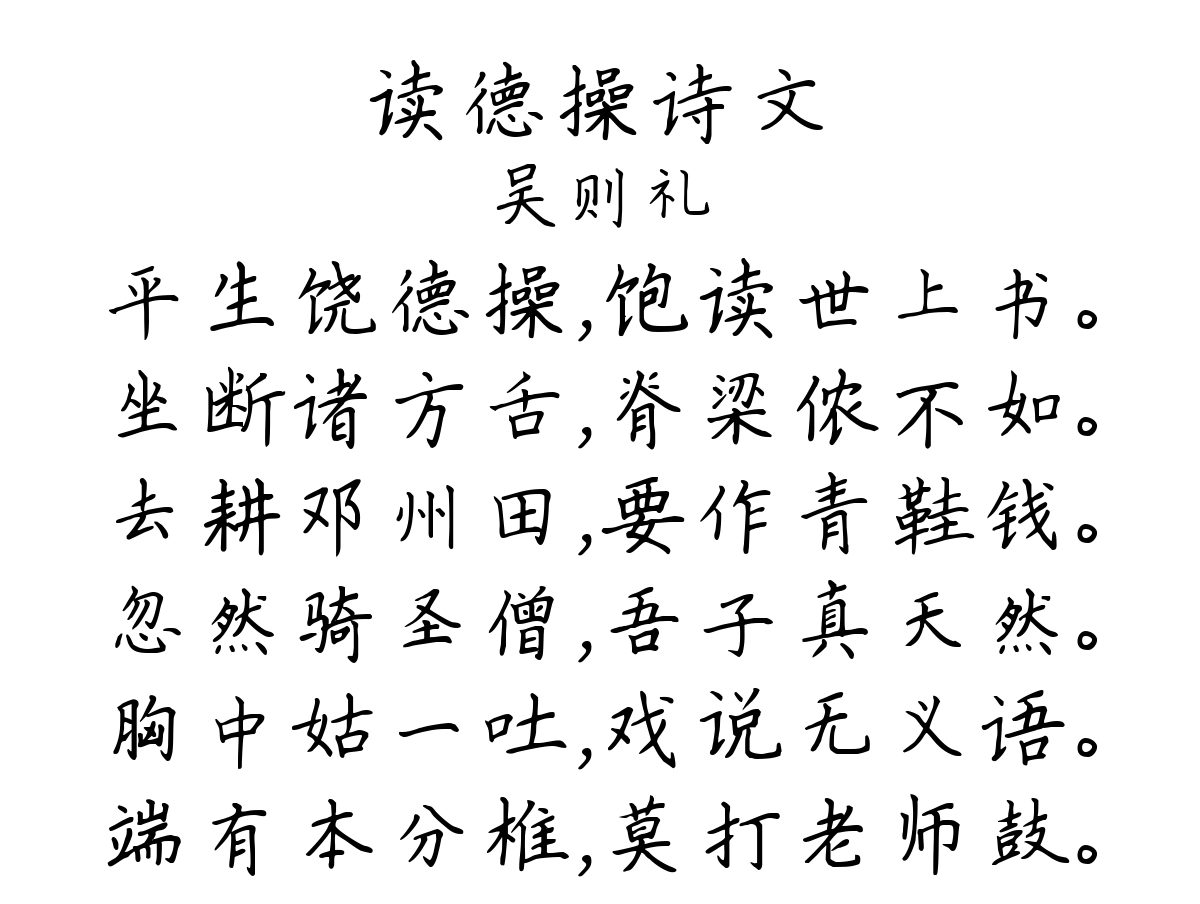 读德操诗文
吴则礼
平生饶德操,饱读世上书。
坐断诸方舌,脊梁侬不如。
去耕邓州田,要作青鞋钱。
忽然骑圣僧,吾子真天然。
胸中姑一吐,戏说无义语。
端有本分椎,莫打老师鼓。